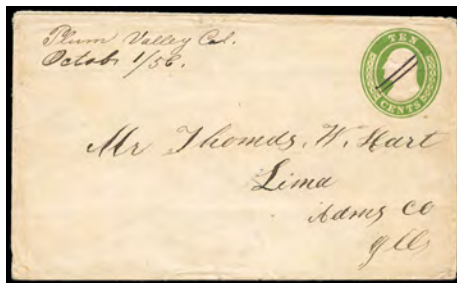 Plum Valley Cal.
Octob. 1/56.
TEN
CENTS
Mr Thomas. W. Hart
Lima
Adams Co
Ills